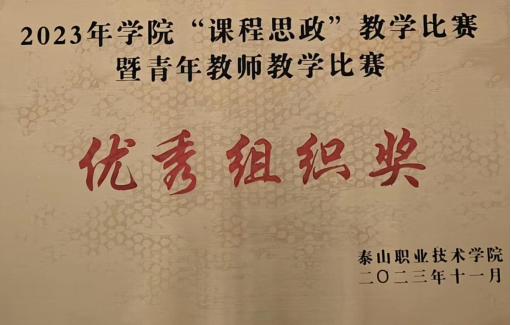 2023年学院“课程思政”教学比赛
暨青年教师教学比赛
优秀组织奖
泰山职业技术学院
二〇二三年十一月